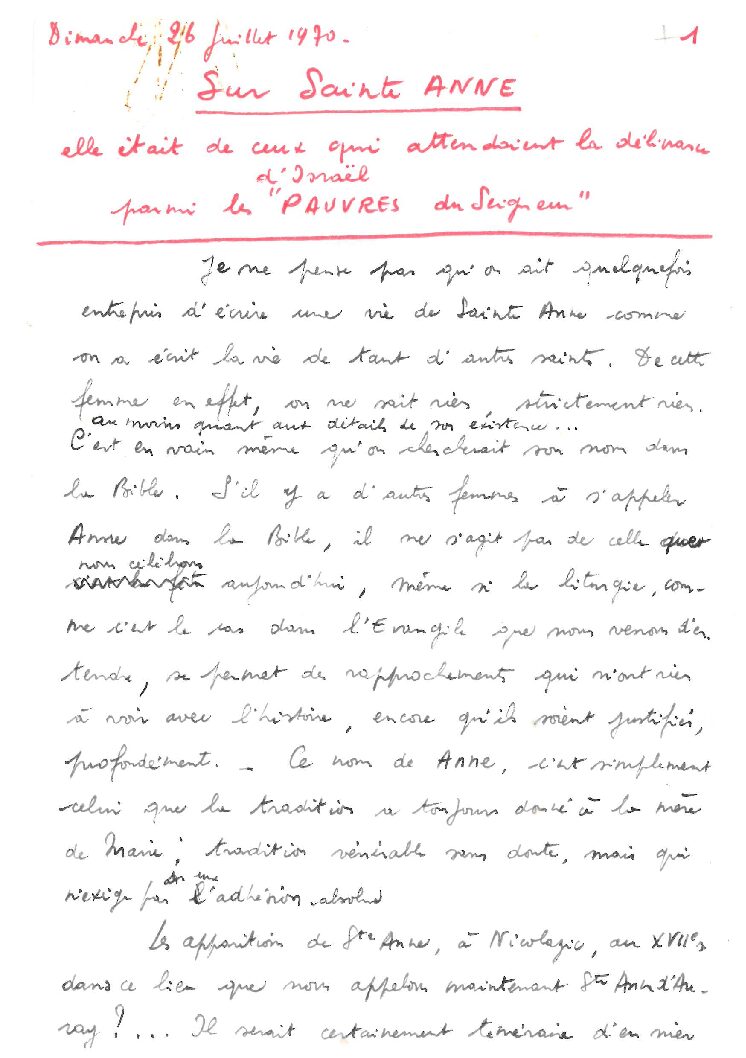 Dimanche 26 Juillet 1970.
1
Sur Sainte ANNE
elle était de ceux qui attendaient la délivrance
d'Israël
parmi les "PAUVRES du Seigneur"
Je ne pense pas qu'on ait quelquefois
entrepris d'écrire une vie de Sainte Anne comme
on a écrit la vie de tant d'autres saints. De cette
femme en effet, on ne sait rien, strictement rien.
au moins quant aux détails de son existence...
C'est en vain même qu'on chercherait son nom dans
la Bible. S'il y a d'autres femmes à s'appeler
Anne dans la Bible, il ne s'agit pas de celle que
nous célébrons
aujourd'hui, même si la liturgie, com-
me c'est le cas dans l'Evangile que nous venons d'en-
tendre, se permet des rapprochements qui n'ont rien
à voir avec l'histoire, encore qu'ils soient justifiés,
profondément. _ Ce nom de Anne, c'est simplement
celui que la tradition a toujours donné à la mère
de Marie ; tradition vénérable sans doute, mais qui
n'exige pas une adhésion absolue
Les apparitions de Ste Anne, à Nicolazic, au XVIIe s
dans ce lieu que nous appelons maintenant Ste Anne d'Au-
ray ?... Il serait certainement téméraire d'en nier